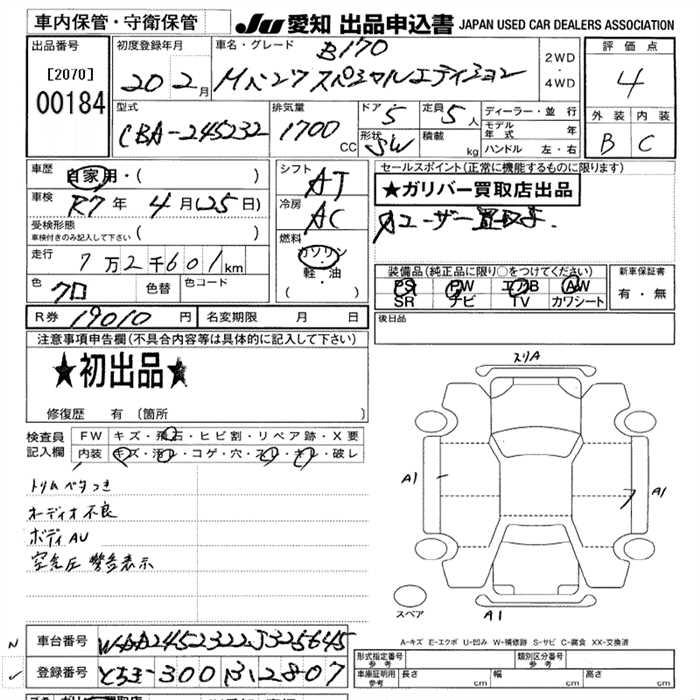 車内保管・守衛保管
JU 愛知 出品申込書 JAPAN USED CAR DEALERS ASSOCIATION
出品番号
[2070]
00184
初度登録年月
20 2月
車名・グレード
B170
Mベンツ スペシャルエディション
2WD
・
4WD
評価点
4
外装 内装
B C
型式
CBA-245232
排気量
1700
CC
ドア
5
定員
5人
形状
SW
積載
kg
ディーラー・並行
モデル年式 年
ハンドル 左・右
車歴
自家用・( )
車検
R7年 4月(25日)
受検形態
車検付きのみ記入して下さい ( )
走行
7万2千601km
色
クロ
色替
色コード
シフト
AT
冷房
AC
燃料
ガソリン
軽・油
( )
セールスポイント(正常に機能するものに限ります)
★ガリバー買取店出品
★ユーザー買取車.
装備品(純正品に限り○をつけてください)
PS PW エアB AW
SR ナビ TV カワシート
新車保証書
有・無
R券 19010円
名変期限 月 日
後日品
注意事項申告欄(不具合内容等は具体的に記入して下さい)
★初出品★
修復歴 有 〔箇所 〕
検査員
記入欄
FW キズ・飛石・ヒビ割・リペア跡・X要
内装 キズ・汚レ・コゲ・穴・スレ・キレ・破レ
トリムベタつき
オーディオ不良
ボディAU
空気圧 警告表示
スリA
A1
A1
スペア
A1
A-キズ E-エクボ U-凹み W-補修跡 S-サビ C-腐食 XX-交換済
N
車台番号 WDD2452322J325645
✓
登録番号 とちぎ-300 ひ2807
形式指定番号
参考
類別区分番号
参考
車庫証明用
参考
長さ cm
幅 cm
高さ cm